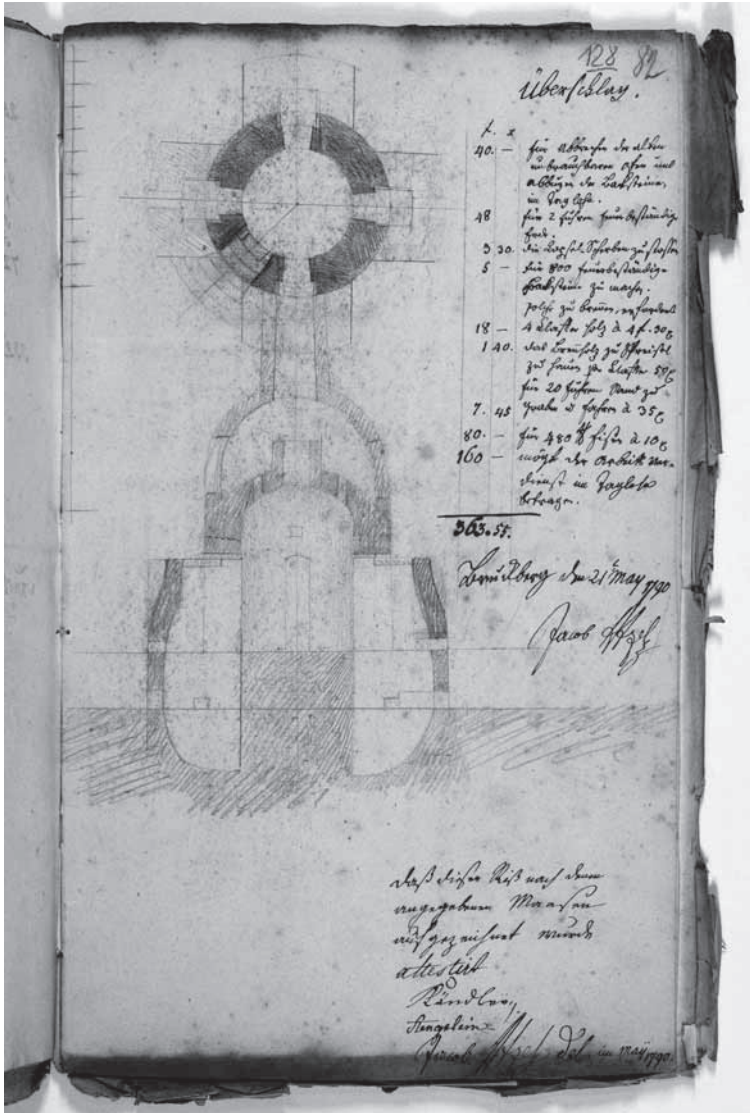 128 82
Überschlag.
f. x
40. — für Abbrechen des alten
unbrauchbaren Ofen und
der Backsteine,
im Taglohn.
48 für 2 Fuhren feuerbeständige
Erde.
3 30. die Kapsel-Scherben zu stossen
5 — für 800 feuerbeständige
Backsteine zu machen.
solche zu brennen, erfordert
18 — 4 Klafter Holz à 4 f. 30 x
1 40. das Brennholz zu
zu hauen pr Klafter
für 20 Fuhren Sand zu
7. 45 graben u fahren à 35 x
80. — für 480 ℔ Eisen à 10 x
160 — mögte der Arbeits Ver-
dienst im Taglohn
betragen.
363. 55.
Bruckberg den 21t May 1790
Jacob
Daß dieser Riß nach denen
angegebenen Maasen
aufgezeichnet wurde
attestirt
Händler,
Jacob del. im May 1790.